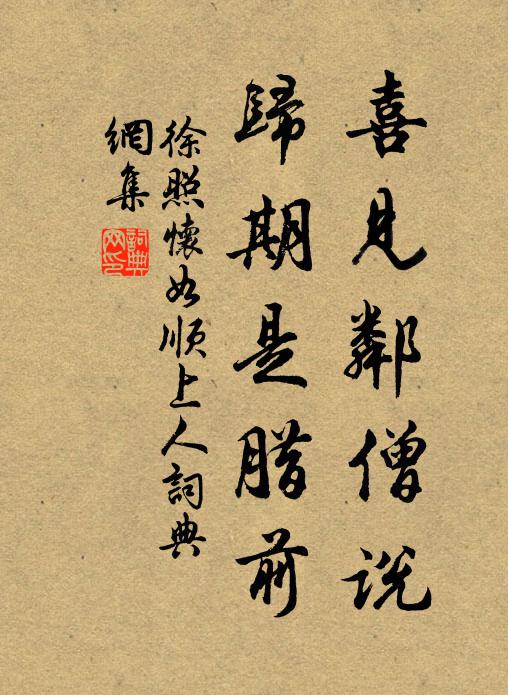 喜見鄰僧說
歸期是腊前
徐照懷如順上人詞典
網集
詞典
網印